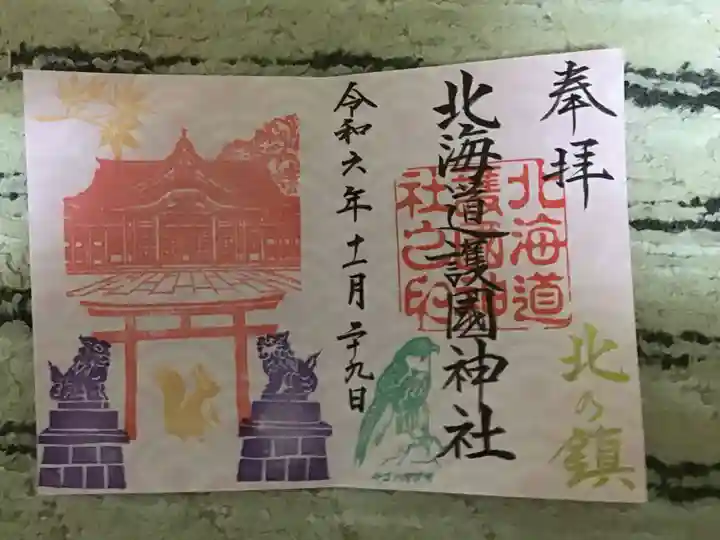 奉拝
北海道護國神社
北海道護國神社之印
北の鎮
令和六年十一月二十九日